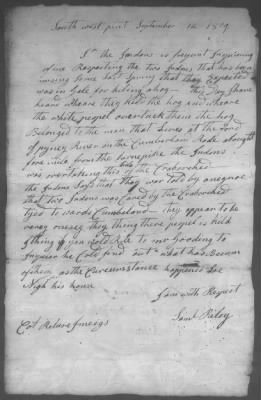 South west point September 12 1809
Sir the Indons is Frequnt Inquiering
of me Respecting the two Indons that has been
missing some last Spring that they Expected
was in Gale for kiling a hog — they Say thare
hears wheare they kild the hog and wheare
the white peopel overtuck them the hog
Belonged to the man that Lives at the ford
of River on the Cumberlon Rode a bought
five miles from the turnpike the Indons
was overtaking this Side of the Craborchard
the Indons Says that they war told by a negroe
that two Indons was Cared by the Craborchard
tyed to wards Cumbeland — they appear to be
varey oneasy they think there peopel is kild
I think if you would Rite to mr Gording to
Inquier he Cold find out what has Becom
of them as the Circumstance happened So
Nigh his house
I am with Respect
Saml Riley
Col Return J meigs